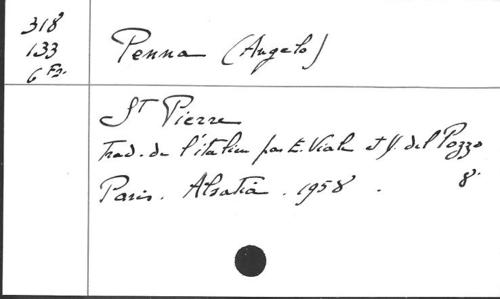 318
133
6 Fr.
Penna (Angelo)
St Pierre
Trad. de l'italien par E. Viale et V. del Pozzo
Paris. Alsatia. 1958. 8°